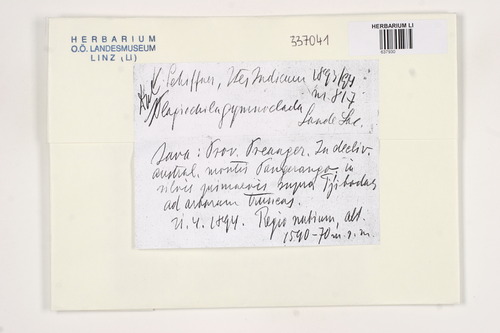 HERBARIUM
O.Ö. LANDESMUSEUM
LINZ (LI)
337041
HERBARIUM LI
V. Schiffner, Iter Indicum 1893/94
nr. 817
Plagiochila gymnoclada
Sande Lac.
Java: Prov. Preanger. In decliv.
austral. montis Pangerango, in
silvis primaevis supra Tjibodas
ad arborum truncos.
4. 1894. Regio nubium, alt.
1590-70 m. s. m.